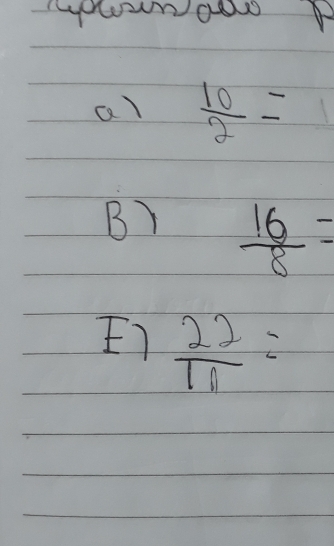 a) 10/2 =
B) 16/8 =
E) 22/11 =